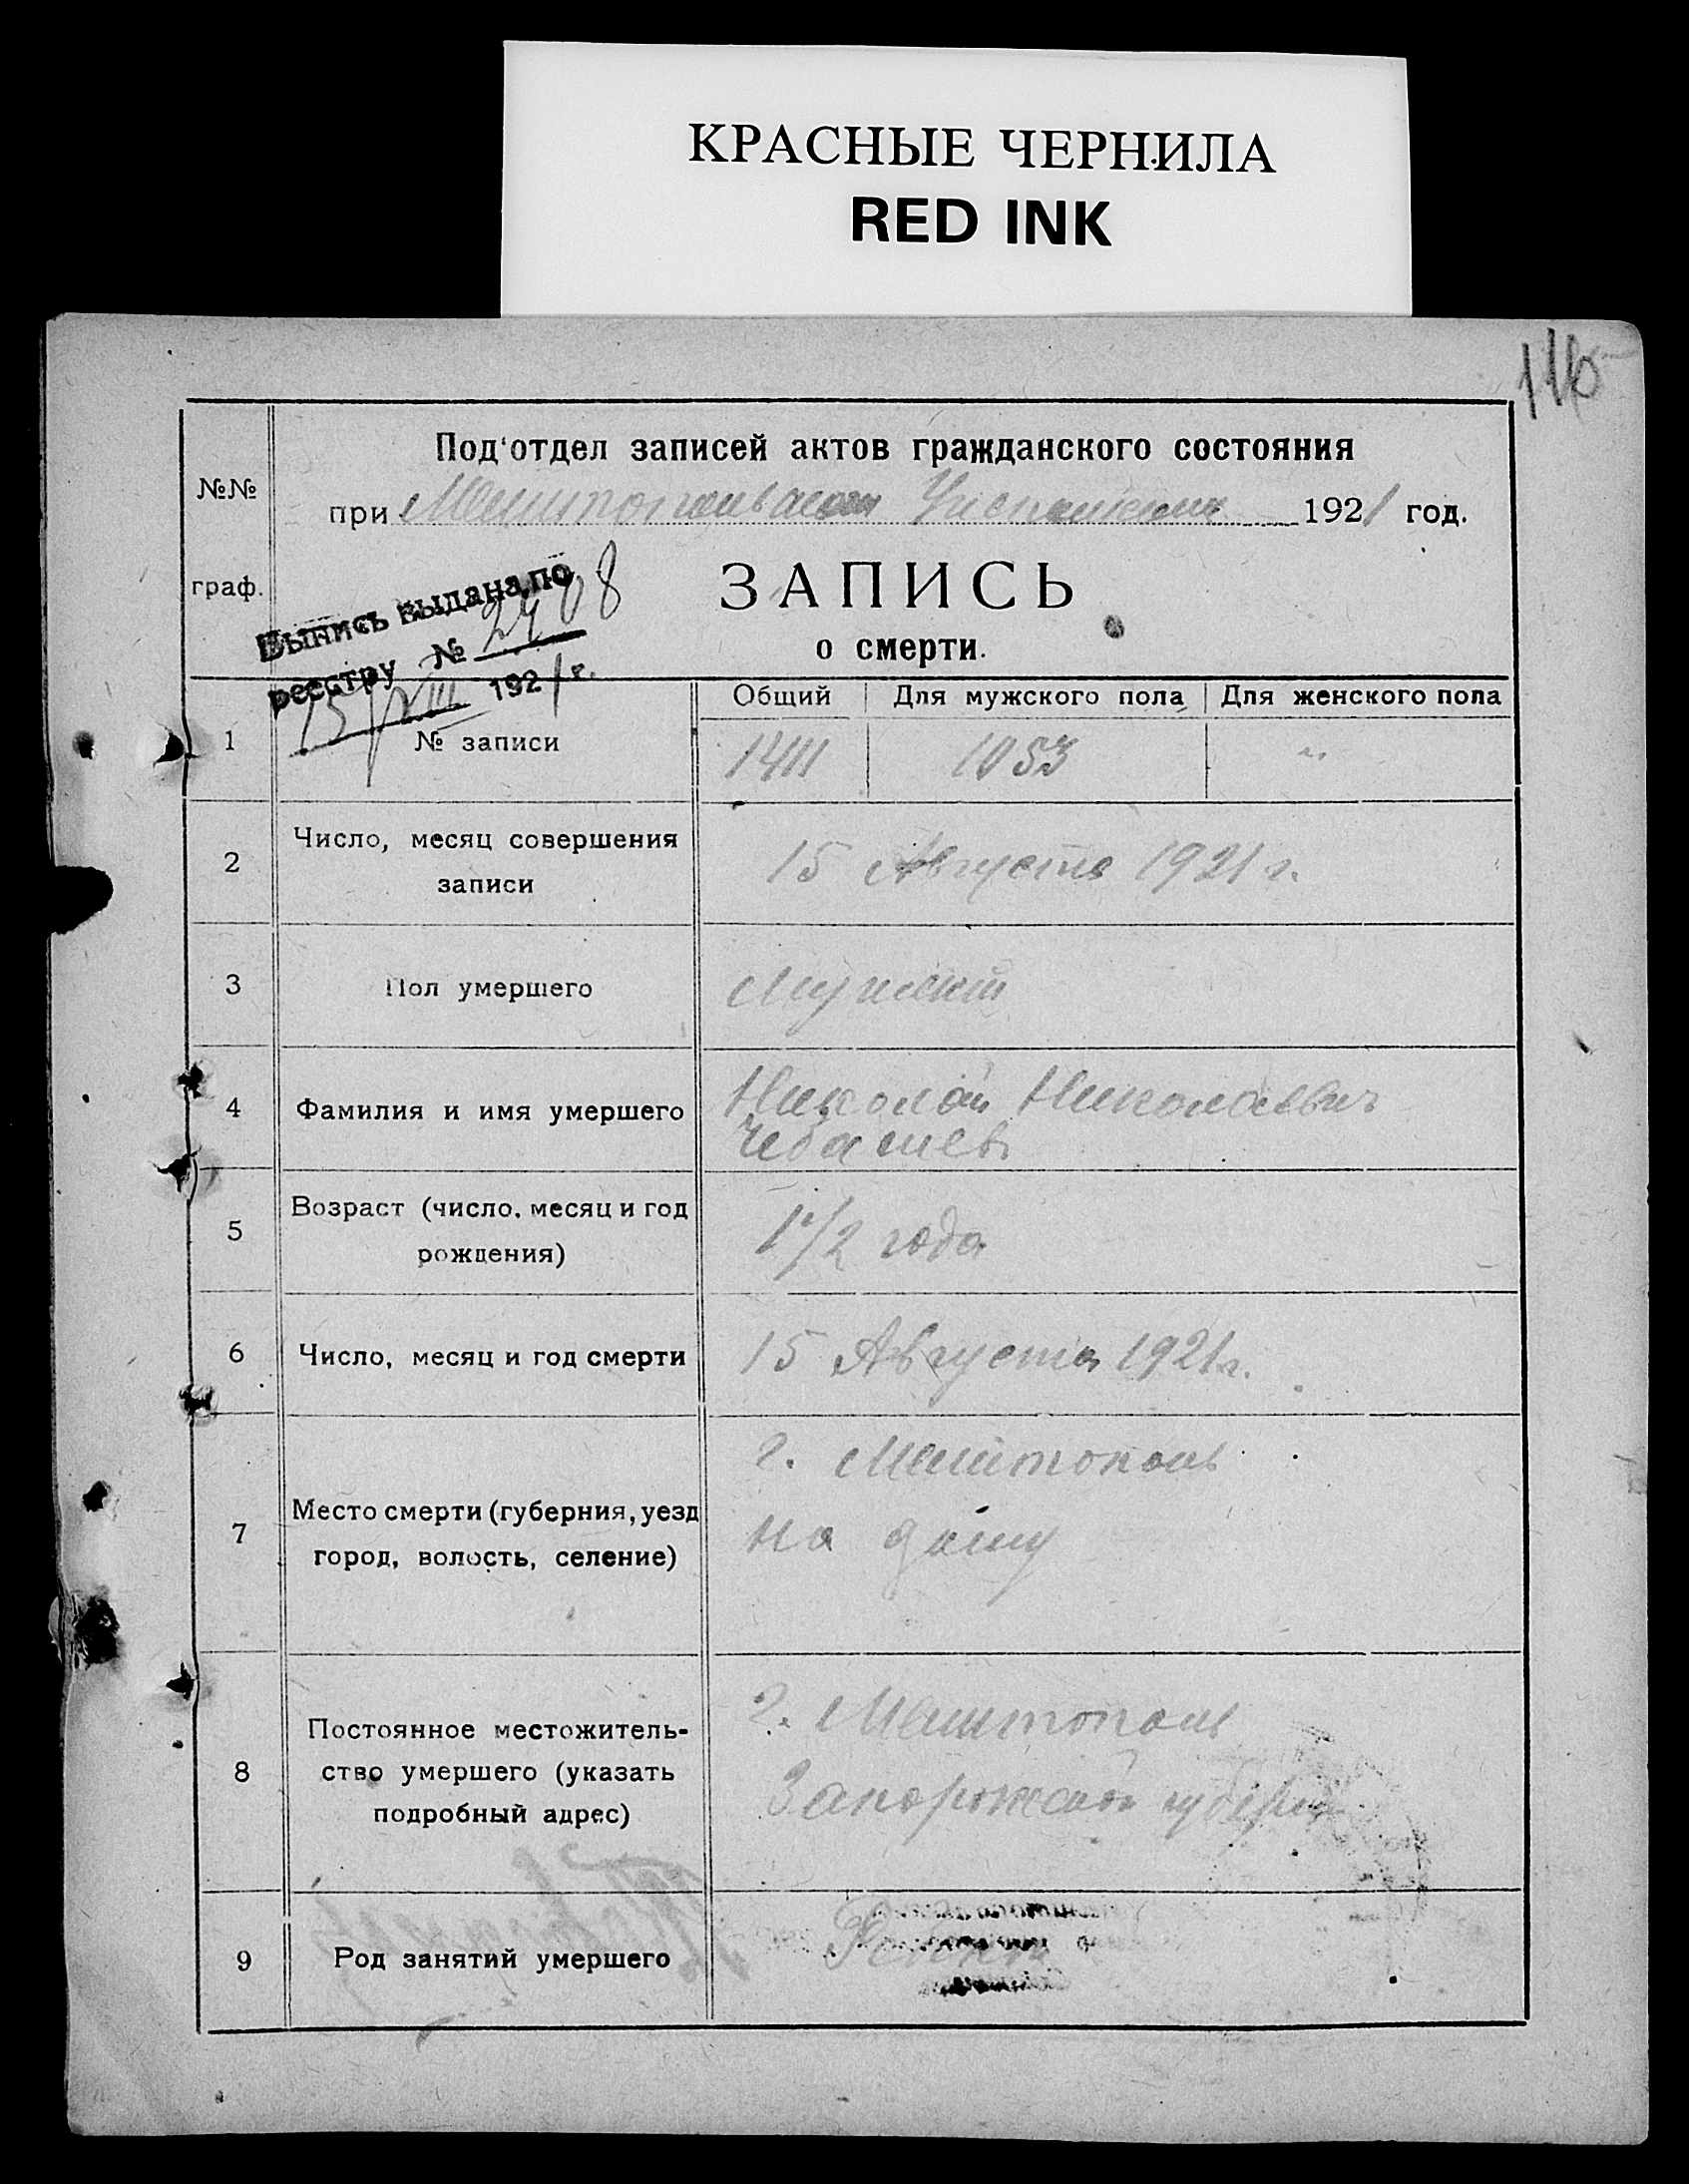 КРАСНЫЕ ЧЕРНИЛА
RED INK
116
Под'отдел записей актов гражданского состояния
№№
при Мелитопольском 1921 год.
граф.
Выпись выдана по
реестру № 2408
15/VIII 1921 г.
ЗАПИСЬ
о смерти.
Общий Для мужского пола Для женского пола
1 № записи 1411 1053 "
2 Число, месяц совершения
записи
15 Августа 1921 г.
3 Пол умершего Мужской
4 Фамилия и имя умершего Николай Николаевич
5 Возраст (число, месяц и год
рождения)
1 1/2 года
6 Число, месяц и год смерти 15 Августа 1921 г.
7 Место смерти (губерния, уезд
город, волость, селение)
г. Мелитополь
на дому
8 Постоянное местожитель-
ство умершего (указать
подробный адрес)
г. Мелитополь
Запорожской губернии
9 Род занятий умершего